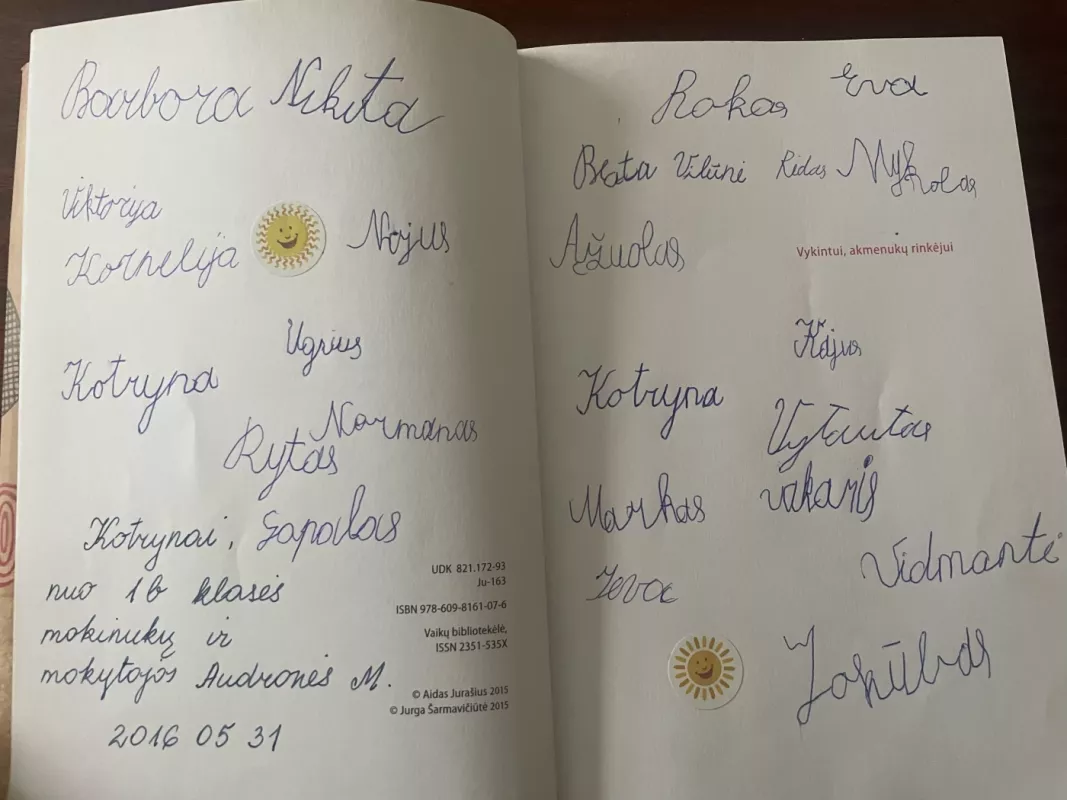 Barbora Nikita
Viktorija
Kornelija Nojus
Ugrius
Kotryna
Normanas
Rytas
Kotrynai, Gapalas
nuo 1b klasės
mokinukų ir
mokytojos Audronės M.
2016 05 31
UDK 821.172-93
Ju-163
ISBN 978-609-8161-07-6
Vaikų bibliotekėlė,
ISSN 2351-535X
© Aidas Jurašius 2015
© Jurga Šarmavičiūtė 2015
Rokas Eva
Beata Vilūnė Ridas Mykolas
Ąžuolas
Vykintui, akmenukų rinkėjui
Kajus
Kotryna
Vytautas
Markas vakaris
Ieva
Vidmantė
Jokūbas